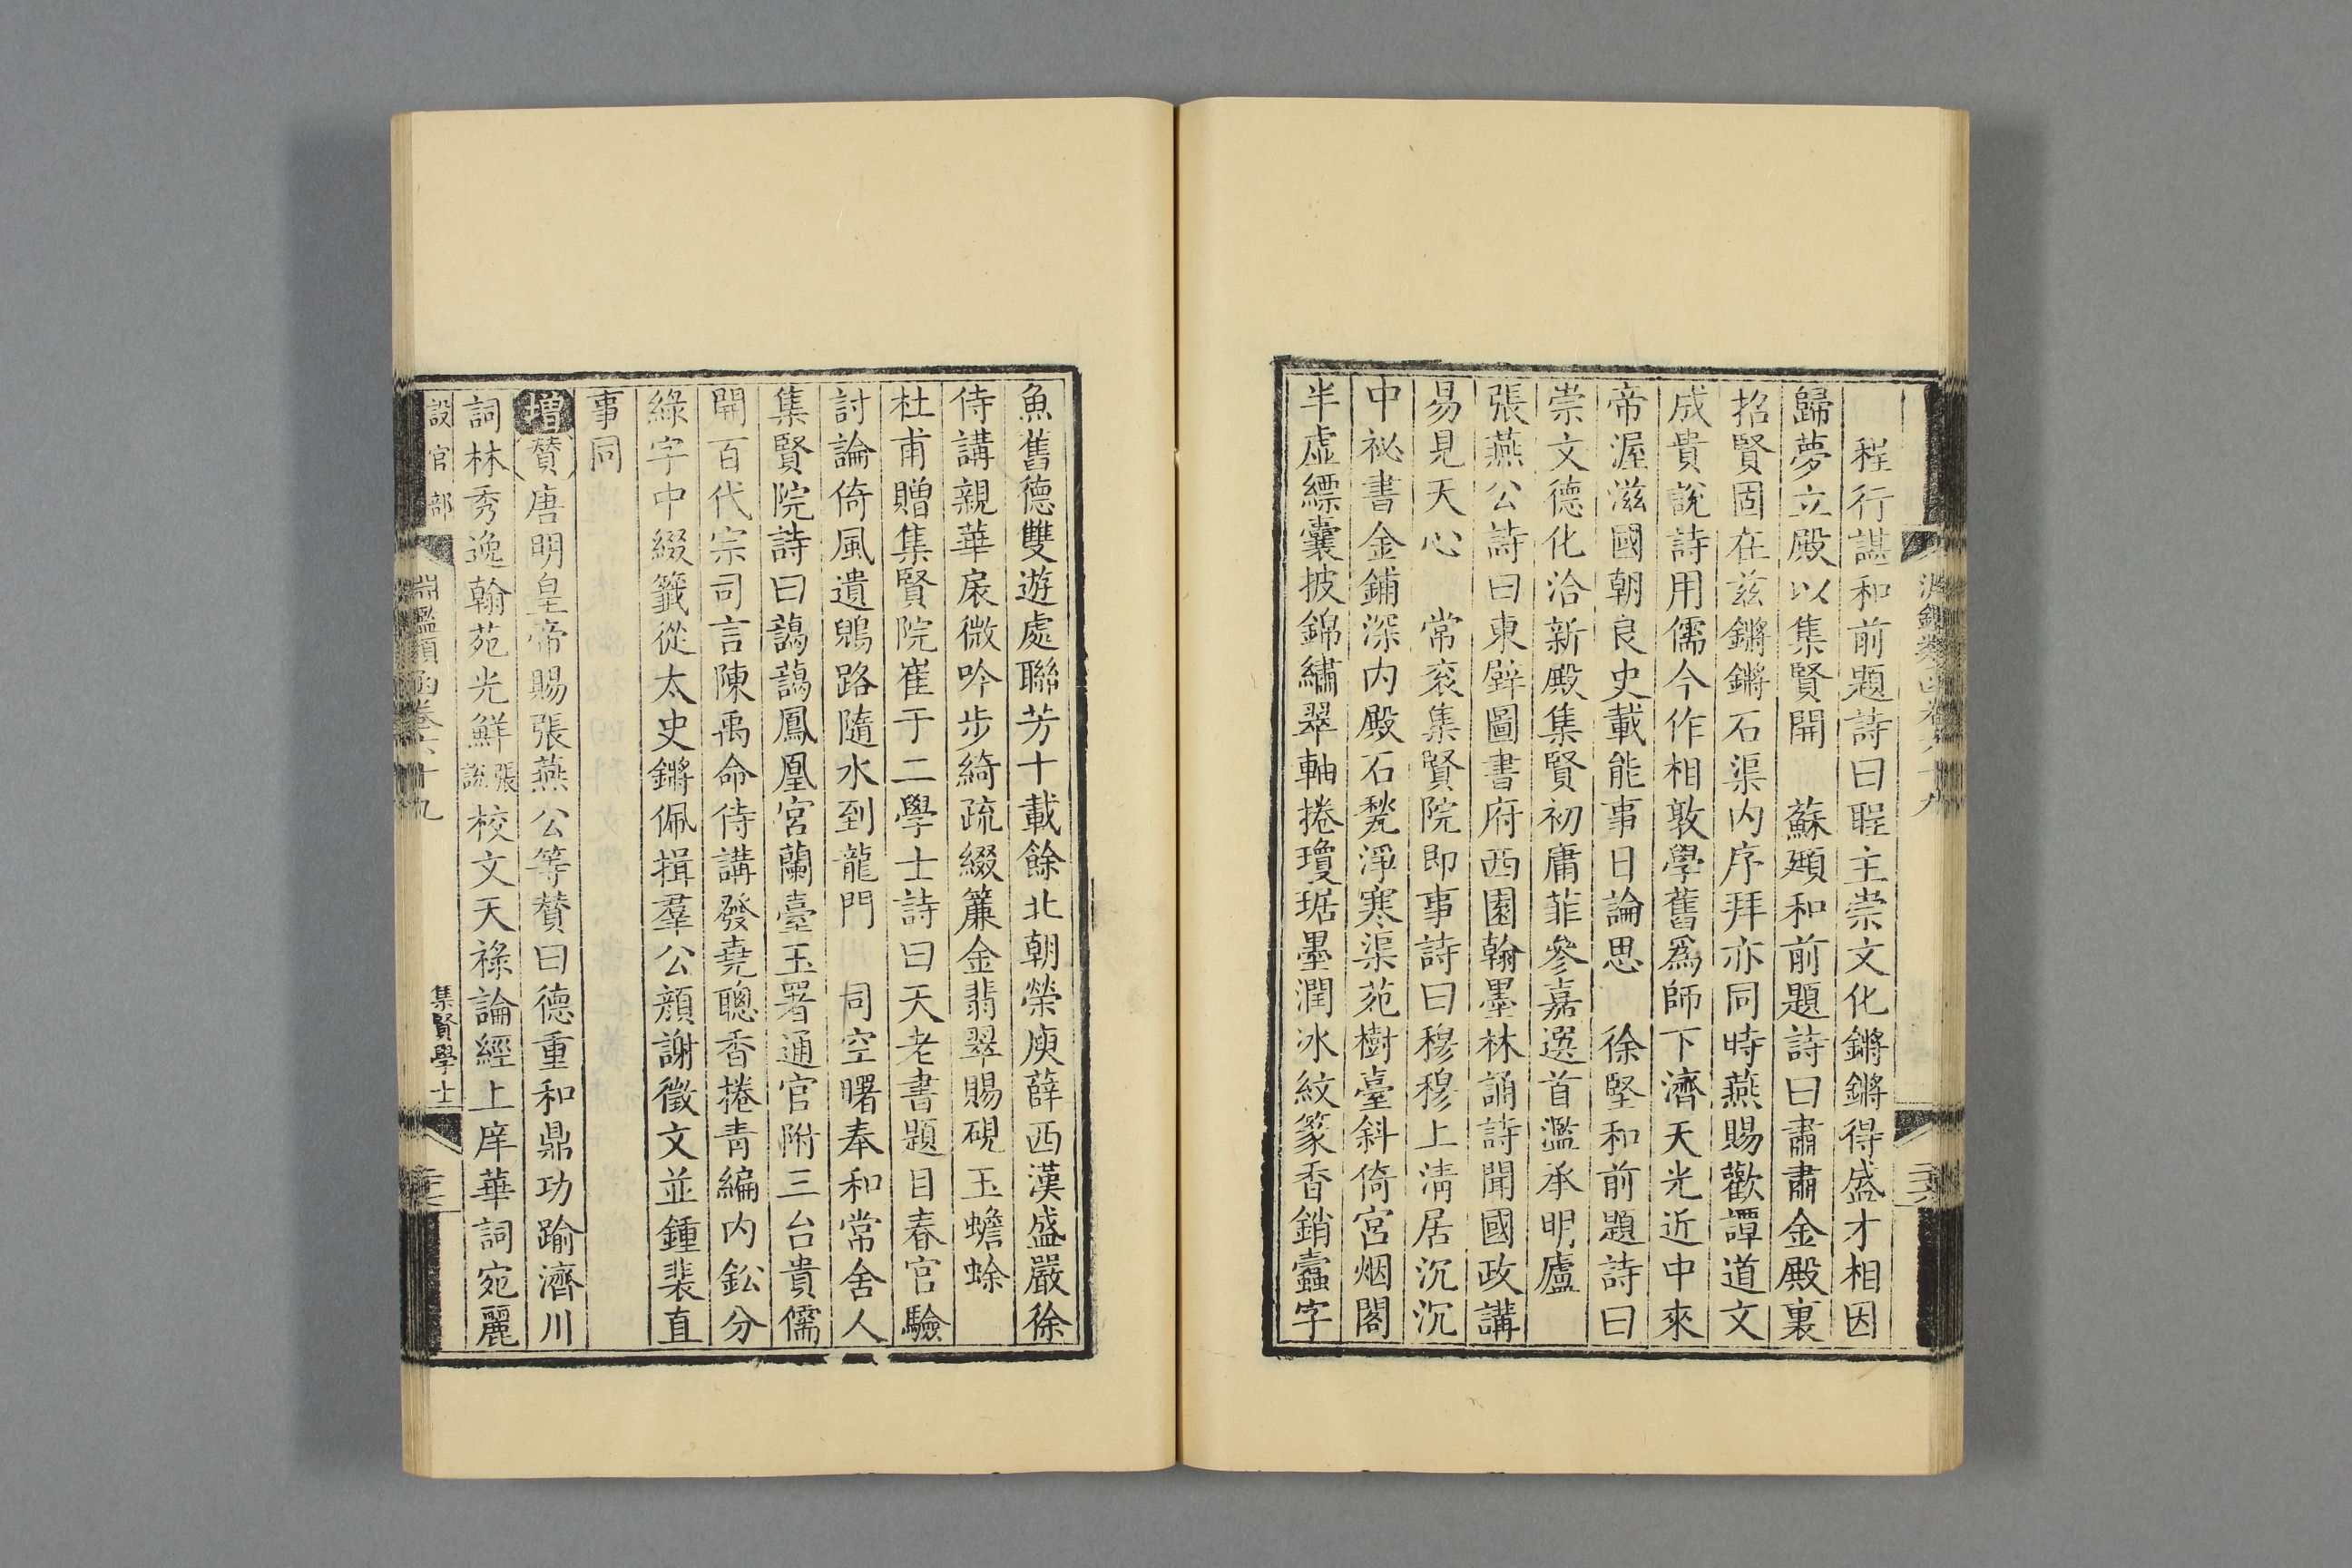 程行諶和前題詩曰聖主崇文化鏘鏘得盛才相因
歸夢立殿以集賢開　蘇頲和前題詩曰肅肅金殿裏
招賢固在茲鏘鏘石渠内序拜亦同時燕賜歡譚道文
成貴說詩用儒今作相敦學舊爲師下濟天光近中來
帝渥滋國朝良史載能事日論思　徐堅和前題詩曰
崇文德化洽新殿集賢初庸菲參嘉選首濫承明廬
張燕公詩曰東壁圖書府西園翰墨林誦詩聞國政講
易見天心　常袞集賢院即事詩曰穆穆上清居沉沉
中祕書金鋪深内殿石甃淨寒渠苑樹臺斜倚宮烟閣
半虛縹囊披錦繡翠軸捲瓊琚墨潤冰紋篆香銷蠹字
魚舊德雙遊處聯芳十載餘北朝榮庾薛西漢盛嚴徐
侍講親華扆微吟步綺疏綴簾金翡翠賜硯玉蟾蜍
杜甫贈集賢院崔于二學士詩曰天老書題目春官驗
討論倚風遺鶂路隨水到龍門　司空曙奉和常舍人
集賢院詩曰藹藹鳳凰宮蘭臺玉署通官附三台貴儒
開百代宗司言陳禹命侍講發堯聰香捲青編内鈆分
綠字中綴籤從太史鏘佩揖羣公顏謝徵文並鍾裴直
事同
增贊唐明皇帝賜張燕公等贊曰德重和鼎功踰濟川
詞林秀逸翰苑光鮮張說校文天祿論經上庠華詞宛麗
設官部　淵鑑類函卷六十九　集賢學士